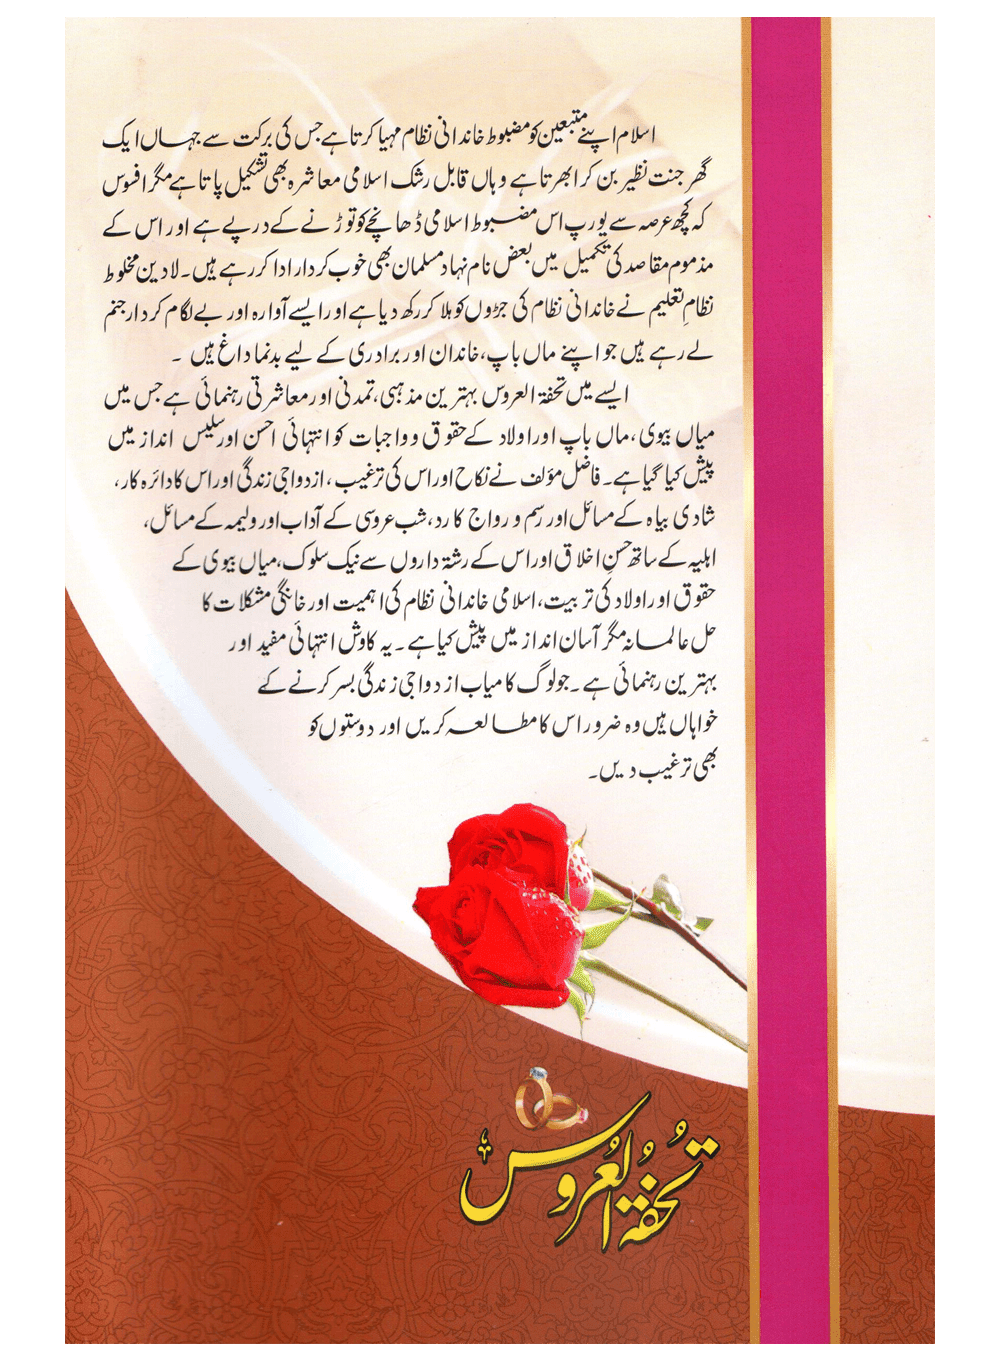 اسلام اپنے متبعین کو مضبوط خاندانی نظام مہیا کرتا ہے جس کی برکت سے جہاں ایک
گھر جنت نظیر بن کر ابھرتا ہے وہاں قابل رشک اسلامی معاشرہ بھی تشکیل پاتا ہے مگر افسوس
کہ کچھ عرصہ سے یورپ اس مضبوط اسلامی ڈھانچے کو توڑنے کے درپے ہے اور اس کے
مذموم مقاصد کی تکمیل میں بعض نام نہاد مسلمان بھی خوب کردار ادا کر رہے ہیں۔ لادین مخلوط
نظامِ تعلیم نے خاندانی نظام کی جڑوں کو ہلا کر رکھ دیا ہے اور ایسے آوارہ اور بے لگام کردار جنم
لے رہے ہیں جو اپنے ماں باپ، خاندان اور برادری کے لیے بدنما داغ ہیں ۔
ایسے میں تحفۃ العروس بہترین مذہبی، تمدنی اور معاشرتی رہنمائی ہے جس میں
میاں بیوی، ماں باپ اور اولاد کے حقوق و واجبات کو انتہائی احسن اور سلیس انداز میں
پیش کیا گیا ہے۔ فاضل مؤلف نے نکاح اور اس کی ترغیب، ازدواجی زندگی اور اس کا دائرہ کار،
شادی بیاہ کے مسائل اور رسم و رواج کا رد، شب عروسی کے آداب اور ولیمہ کے مسائل،
اہلیہ کے ساتھ حسنِ اخلاق اور اس کے رشتہ داروں سے نیک سلوک، میاں بیوی کے
حقوق اور اولاد کی تربیت، اسلامی خاندانی نظام کی اہمیت اور خانگی مشکلات کا
حل عالمانہ مگر آسان انداز میں پیش کیا ہے ۔ یہ کاوش انتہائی مفید اور
بہترین رہنمائی ہے ۔ جو لوگ کامیاب ازدواجی زندگی بسر کرنے کے
خواہاں ہیں وہ ضرور اس کا مطالعہ کریں اور دوستوں کو
بھی ترغیب دیں۔
تحفۃ العروس